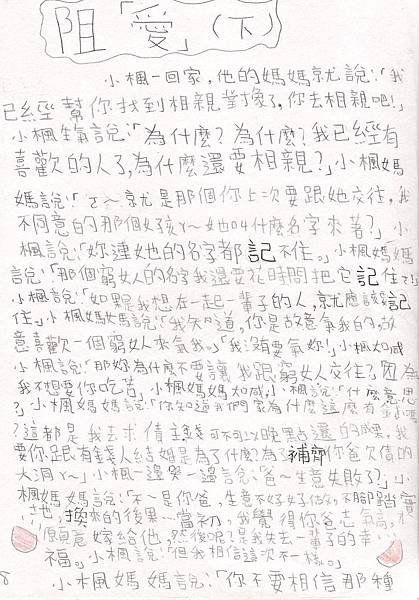 阻「愛」(下)
小楓一回家,他的媽媽就說:「我
已經幫你找到相親對象了,你去相親吧!」
小楓生氣說:「為什麼?為什麼?我已經有
喜歡的人了,為什麼還要相親?」小楓媽
媽說:「ㄜ～就是那個你上次要跟她交往,我
不同意的那個女孩ㄚ～她叫什麼名字來著?」小
楓說:「妳連她的名字都記不住。」小楓媽媽
說:「那個窮女人的名字我還要花時間把它記住
小楓說:「如果是我想在一起一輩子的人,就應該要記
住」小楓媽媽說:「我知道,你是故意氣我的,故
意喜歡一個窮女人來氣我。」「我沒有要氣妳!」小楓
小楓說:「那妳為什麼不要讓我跟窮女人交往?」「因為
我不想要你吃苦」小楓媽媽 小楓說:「什麼意思
?」小楓媽媽說:「你知道我們家為什麼這麼有錢嗎
?這都是我去求債主錢可不可以晚點還的成果,我
要你跟有錢人結婚是為了什麼?為了補齊你爸欠債的
大洞ㄚ～」小楓一邊哭一邊說:「爸～生意失敗了?」小
楓媽媽說:「不～是你爸,生意不好好做,不腳踏實
地,換來的後果…當初,我覺得你爸志氣高,才
願意嫁給他,然後呢?是我失去一輩子的幸
福。」小楓說:「但我相信這次不一樣。」
小楓媽媽說:「你不要相信那種
8